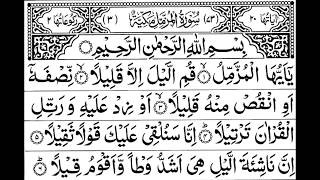 اٰیَاتُهَا ٢٠ (٧٣) سُوْرَةُ الْمُزَّمِّلِ مَكِّيَّةٌ (٣) رُكُوْعَاتُهَا ٢
بِسْمِ اللّٰهِ الرَّحْمٰنِ الرَّحِيْمِ
يٰۤاَيُّهَا الْمُزَّمِّلُ ۙ۱ قُمِ الَّيْلَ اِلَّا قَلِيْلًا ۙ۲ نِّصْفَهٗۤ
اَوِ انْقُصْ مِنْهُ قَلِيْلًا ۙ۳ اَوْ زِدْ عَلَيْهِ وَ رَتِّلِ
الْقُرْاٰنَ تَرْتِيْلًا ۴ اِنَّا سَنُلْقِيْ عَلَيْكَ قَوْلًا ثَقِيْلًا ۵
اِنَّ نَاشِئَةَ الَّيْلِ هِيَ اَشَدُّ وَطْاً وَّ اَقْوَمُ قِيْلًا ۶